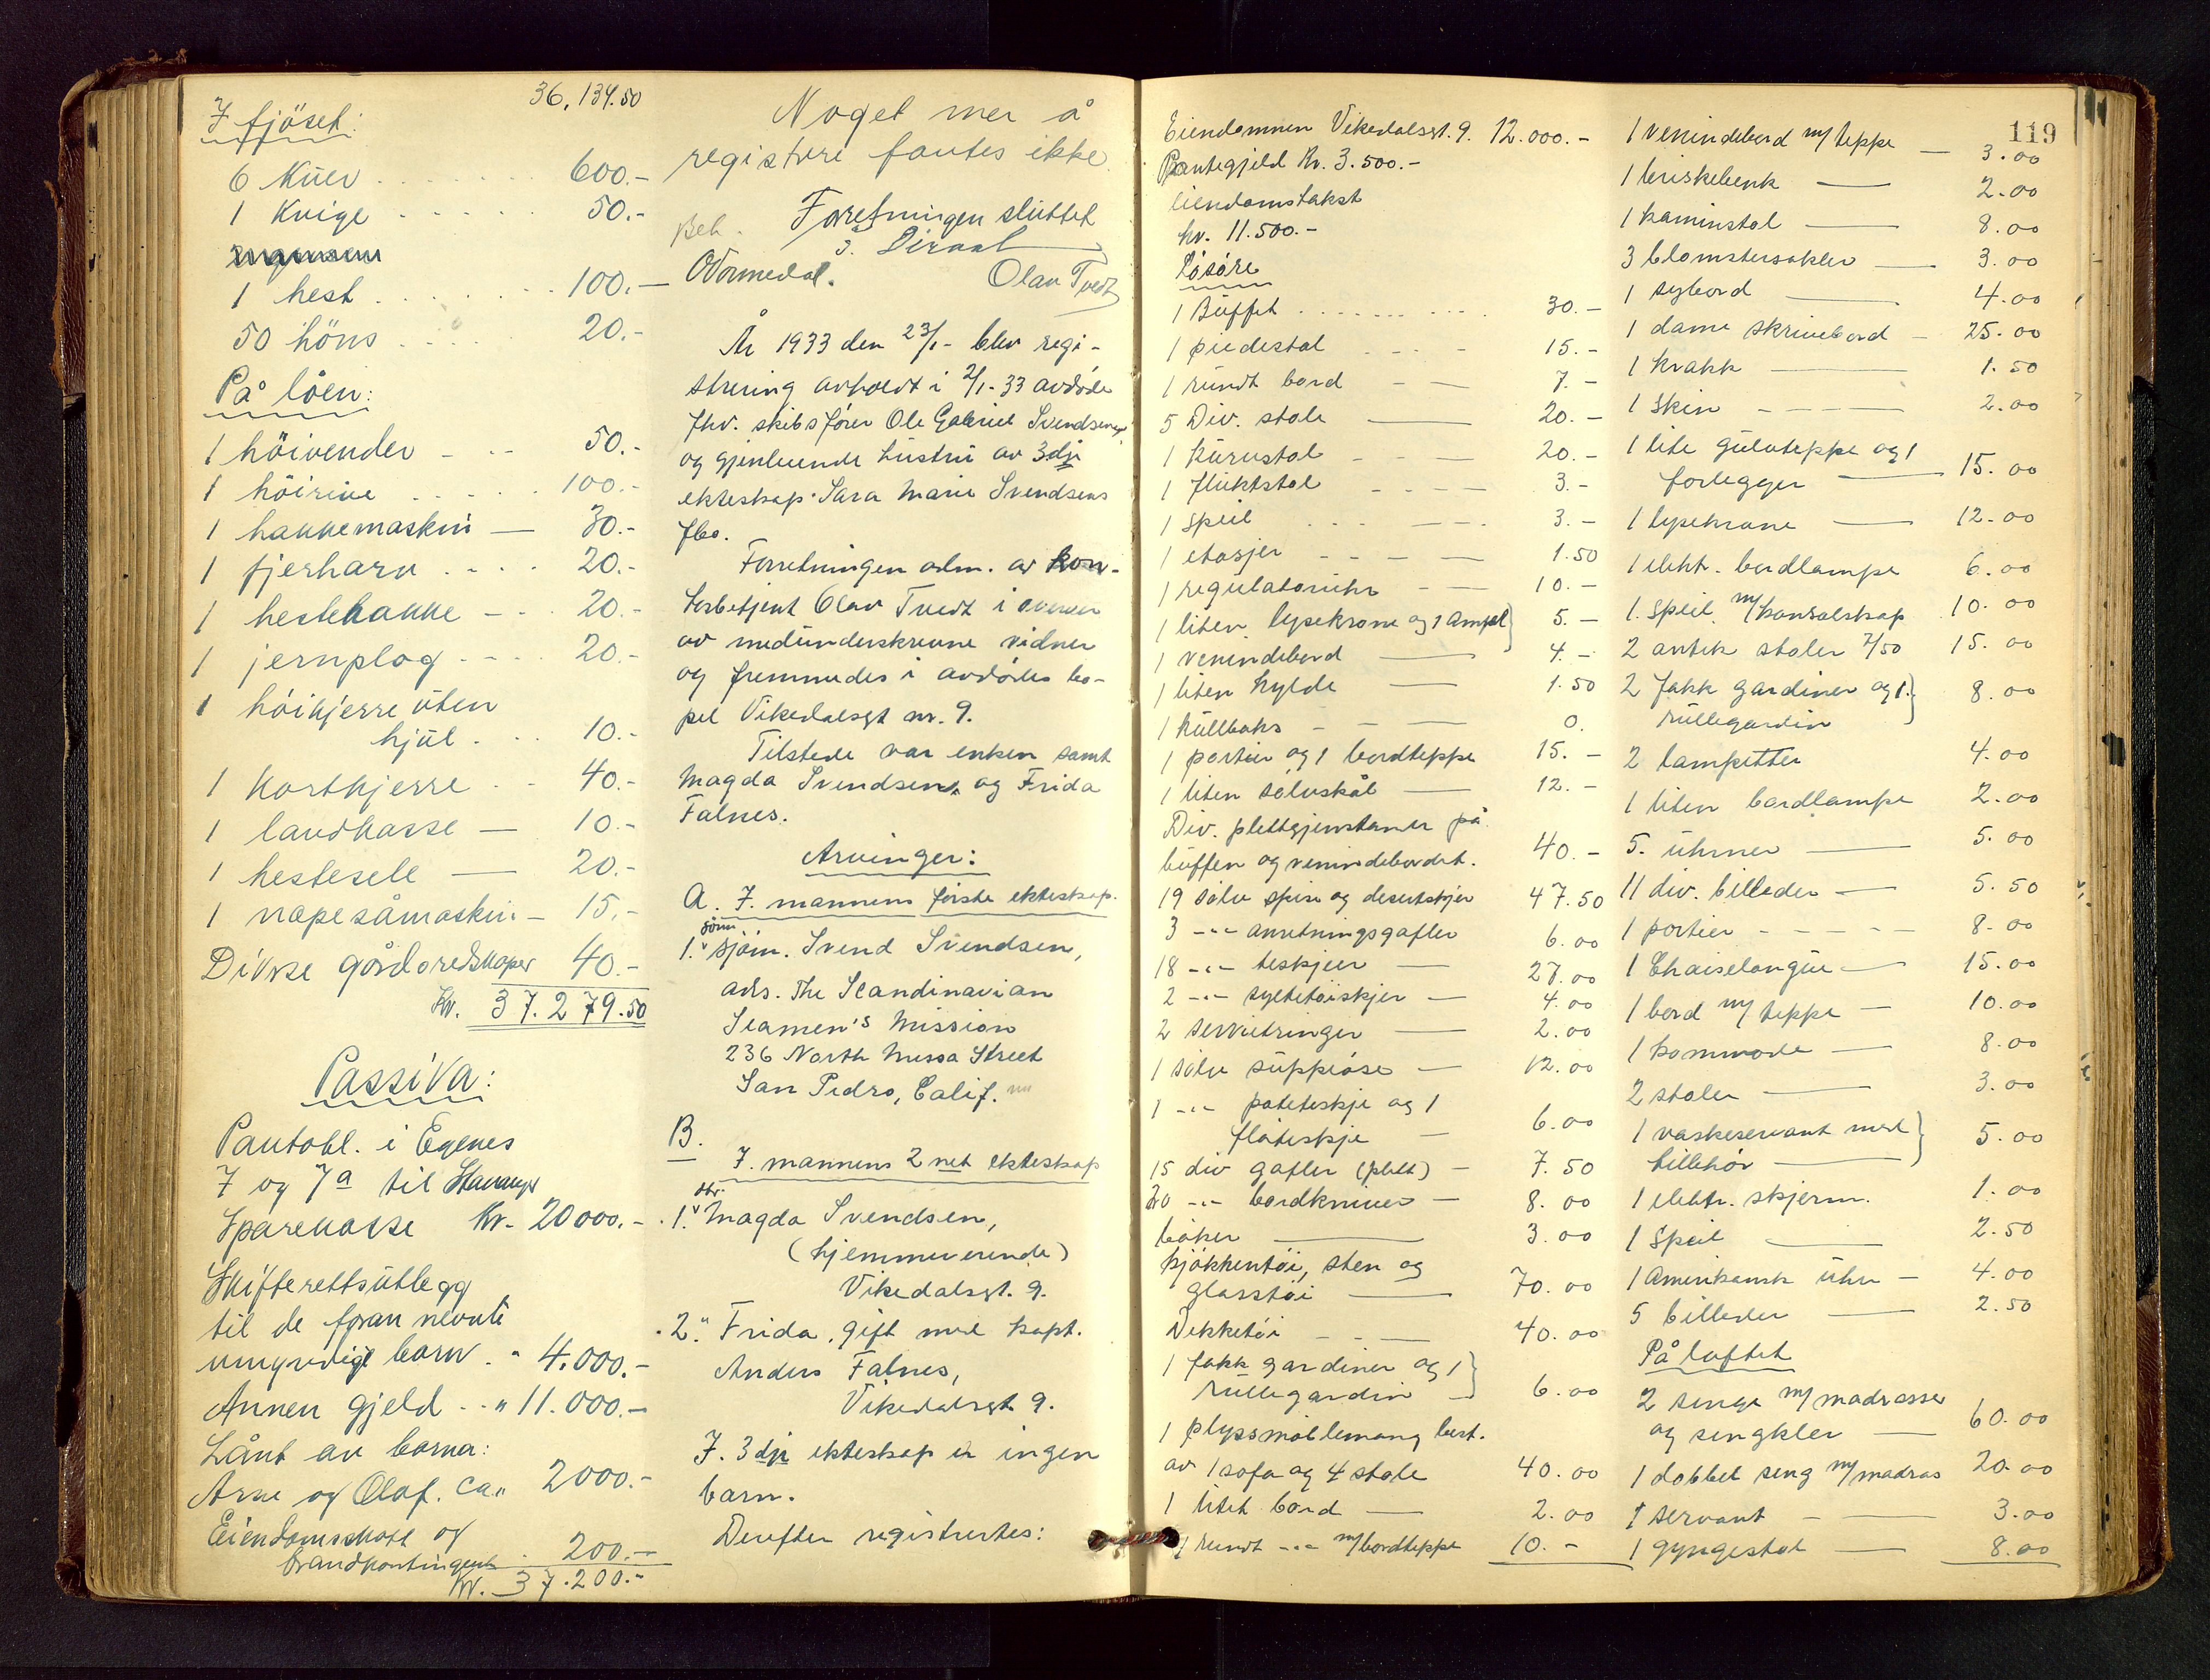 36,134.50
I fjöset:
6 Kuer 600.-
1 Kvige 50.-
1 hest 100.-
50 höns 20.-
På löen:
1 höivender 50.-
1 höirive 100.-
1 hakkemaskin 30.-
1 fjerharv 20.-
1 hestehakke 20.-
1 jernplog 20.-
1 höikjerre uten
hjul 10.-
1 Kortkjerre 40.-
1 landkasse 10.-
1 hestesele 20.-
1 næpesåmaskin 15.-
Divese gårdsredskaper 40.-
Kr. 37.279.50
Passiva:
Pantobl. i Egenes
7 og 7a til Stavanger
Sparekasse Kr. 20000.-
Skifterettsutlegg
til de foran nevnte
umyndige barn " 4.000.-
Annen gjeld " 11.000.-
Lånt av barna:
Arne og Olaf. ca " 2000.-
Eiendomsskatt og
brandkontingent 200.-
Kr. 37.200.-
Noget mer å
registrere fantes ikke
Beh. Forretningen sluttet
Olav Tvedt
År 1933 den 23/1- blev regi-
strering avholdt i 2/1-33 avdöde
fhv. skibsförer Ole Gabriel Svendsen
og gjenlevende hustru av 3dje
ekteskap Sara Marie Svendsens
fbo.
Forretningen adm. av kon-
torbetjent Olav Tvedt i overvær
av medunderskrevne vidner
og fremmedes i avdödes bo-
pel Vikedalsgt nr. 9.
Tilstede var enken samt
Magda Svendsen og Frida
Falnes.
Arvinger:
A. I. mannens förste ekteskap.
sönn
1. sjöm. Svend Svendsen,
adrs. The Scandinavian
Seamen's Mission
236 North Messa Street
San Pedro, Calif.
B.
I. mannens 2net ekteskap
dtr.
1. Magda Svendsen,
(hjemmeværende)
Vikedalsgt. 9.
2. " Frida, gift med kapt.
Anders Falnes,
Vikedalsgt 9.
I. 3dje ekteskap er ingen
barn.
Derefter registrertes:
119
Eiendommen Vikedalsgt. 9. 12.000.-
Pantegjeld Kr. 3.500.-
Eiendomstakst
kr. 11.500.-
Lösöre
1 Buffet 30.-
1 piedestal 15.-
1 rundt bord 7.-
5 Div. stole 20.-
1 Kurvstol 20.-
1 fluktstol 3.-
1 speil 3.-
1 etasjer 1.50
1 regulatoruhr 10.-
1 liten lysekrone og 1 Ampel 5.-
1 venindebord 4.-
1 liten hylde 1.50
1 kullboks 0.
1 portier og 1 bordteppe 15.-
1 liten sölvskål 12.-
Div. plettgjenstander på
buffen og venindebordet. 40.-
19 sölv spise og desertskjer 47.50
3 -"- anretningsgafler 6.00
18 -"- teskjeer 27.00
2 -"- syltetöiskjer 4.00
2 serviettringer 2.00
1 sölv suppeöse 12.00
1 -"- poteteskje og 1
flöteskje 6.00
15 div gafler (plett) 7.50
20 -"- bordkniver 8.00
böker 3.00
kjökkentöi, sten og
glasstöi 70.00
Dekketöi 40.00
1 fakk gardiner og 1
rullegardin 6.00
1 plyssmöblemang best.
av 1 sofa og 4 stole 40.00
1 litet bord 2.00
1 rundt -"- m/bordteppe 10.-
1 venindebord m/teppe 3.00
1 briskebenk 2.00
1 kaminstol 8.00
3 blomstersokler 3.00
1 sybord 4.00
1 dame skrivebord 25.00
1 krakk 1.50
1 skin 2.00
1 lite gulvteppe og 1
forlegger 15.00
1 lysekrone 12.00
1 elektr. bordlampe 6.00
1 speil m/konsolskap 10.00
2 antik stoler 7/50 15.00
2 fakk gardiner og 1
rullegardin 8.00
2 lampetter 4.00
1 liten bordlampe 2.00
5. uhrner 5.00
11 div. billeder 5.50
1 portier 8.00
1 Chaiselongue 15.00
1 bord m/teppe 10.00
1 kommode 8.00
2 stoler 3.00
1 vaskeservant med
tilbehör 5.00
1 elektr. skjerm. 1.00
1 Speil 2.50
1 Amerikansk uhr 4.00
5 billeder 2.50
På loftet
2 senge m/madrasser
og sengklær 60.00
1 dobbel seng m/madras 20.00
1 servant 3.00
1 gyngestol 8.00